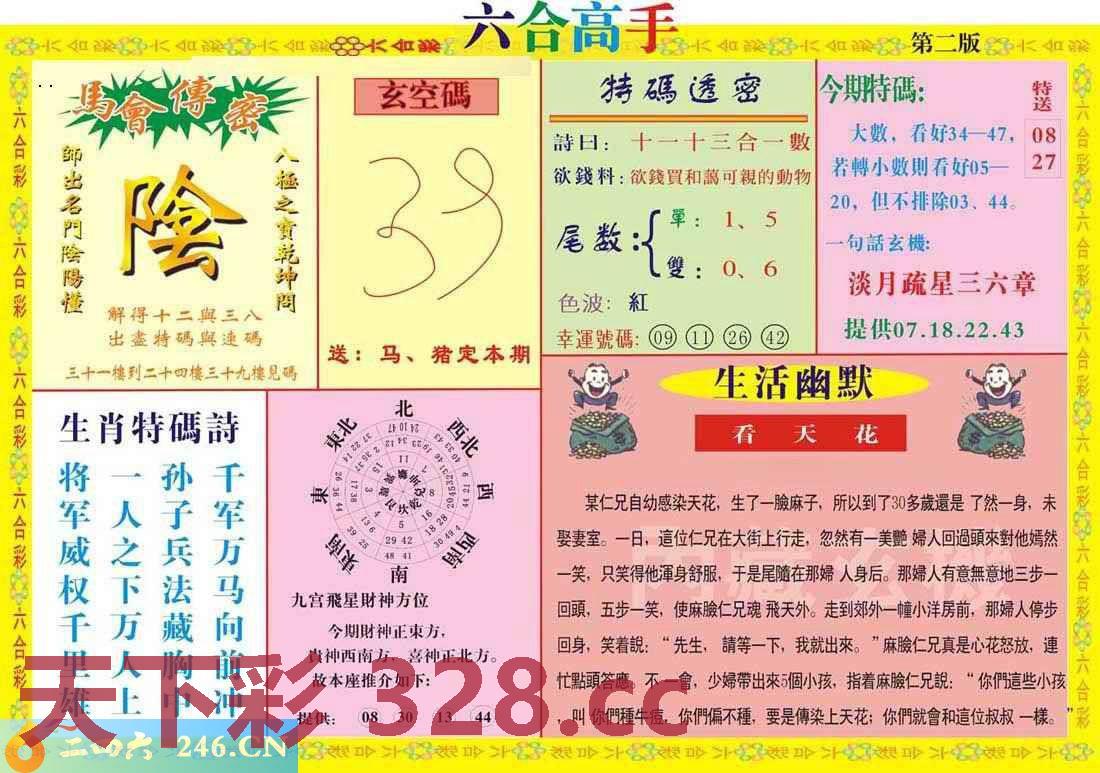 六合高手
第二版
馬會傳密
師出名門陰陽懂
陰
八極之寶乾坤問
解得十二與三八
出盡特碼與連碼
三十一樓到二十四樓三十九樓見碼
玄空碼
送：马、猪定本期
特碼透密
詩曰：十一十三合一數
欲錢料:欲錢買和藹可親的動物
尾数:
單：1、5
雙：0、6
色波:紅
幸運號碼: 09 11 26 42
今期特碼:
特送
08
27
大數，看好34—47，
若轉小數則看好05—
20，但不排除03、44。
一句話玄機:
淡月疏星三六章
提供07.18.22.43
生肖特碼詩
千军万马向前冲
孙子兵法藏胸中
一人之下万人上
将军威权千里雄
北
東北
西北
東
西
東南
西南
南
九宫飛星財神方位
今期財神正東方，
貴神西南方、喜神正北方。
故本座推介如下:
提供: 08 30 13 44
生活幽默
看天花
某仁兄自幼感染天花，生了一臉麻子，所以到了30多歲還是 了然一身，未
娶妻室。一日，這位仁兄在大街上行走，忽然有一美艷 婦人回過頭來對他嫣然
一笑，只笑得他渾身舒服，于是尾隨在那婦 人身后。那婦人有意無意地三步一
回頭，五步一笑，使麻臉仁兄魂 飛天外。走到郊外一幢小洋房前，那婦人停步
回身，笑着說：“先生，請等一下，我就出來。”麻臉仁兄真是心花怒放，連
忙點頭答應。不 一會，少婦帶出來5個小孩，指着麻臉仁兄說：“你們這些小孩
，叫 你們種牛痘，你們偏不種，要是傳染上天花；你們就會和這位叔叔 一樣。”
天下彩 328.cc
二四六 246.CN